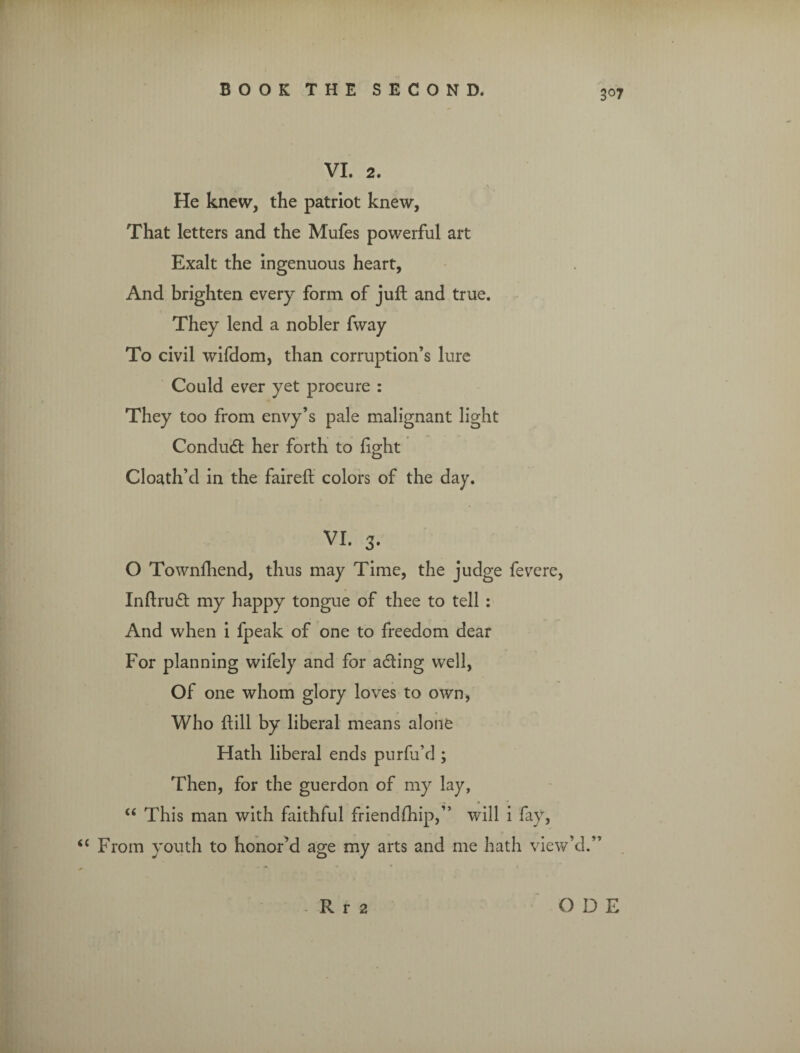 BOOK THE SECOND. 307
VI. 2.
He knew, the patriot knew,
That letters and the Muſes powerful art
Exalt the ingenuous heart,
And brighten every form of juſt and true.
They lend a nobler ſway
To civil wiſdom, than corruption’s lure
Could ever yet procure :
They too from envy’s pale malignant light
Conduct her forth to ſight
Cloath’d in the faireſt colors of the day.
VI. 3.
O Townſhend, thus may Time, the judge ſevere,
Inſtruct my happy tongue of thee to tell :
And when i ſpeak of one to freedom dear
For planning wiſely and for acting well,
Of one whom glory loves to own,
Who ſtill by liberal means alone
Hath liberal ends purſu’d ;
Then, for the guerdon of my lay,
“ This man with faithful friendſhip,” will i ſay,
“ From youth to honor’d age my arts and me hath view’d.”
R r 2 ODE